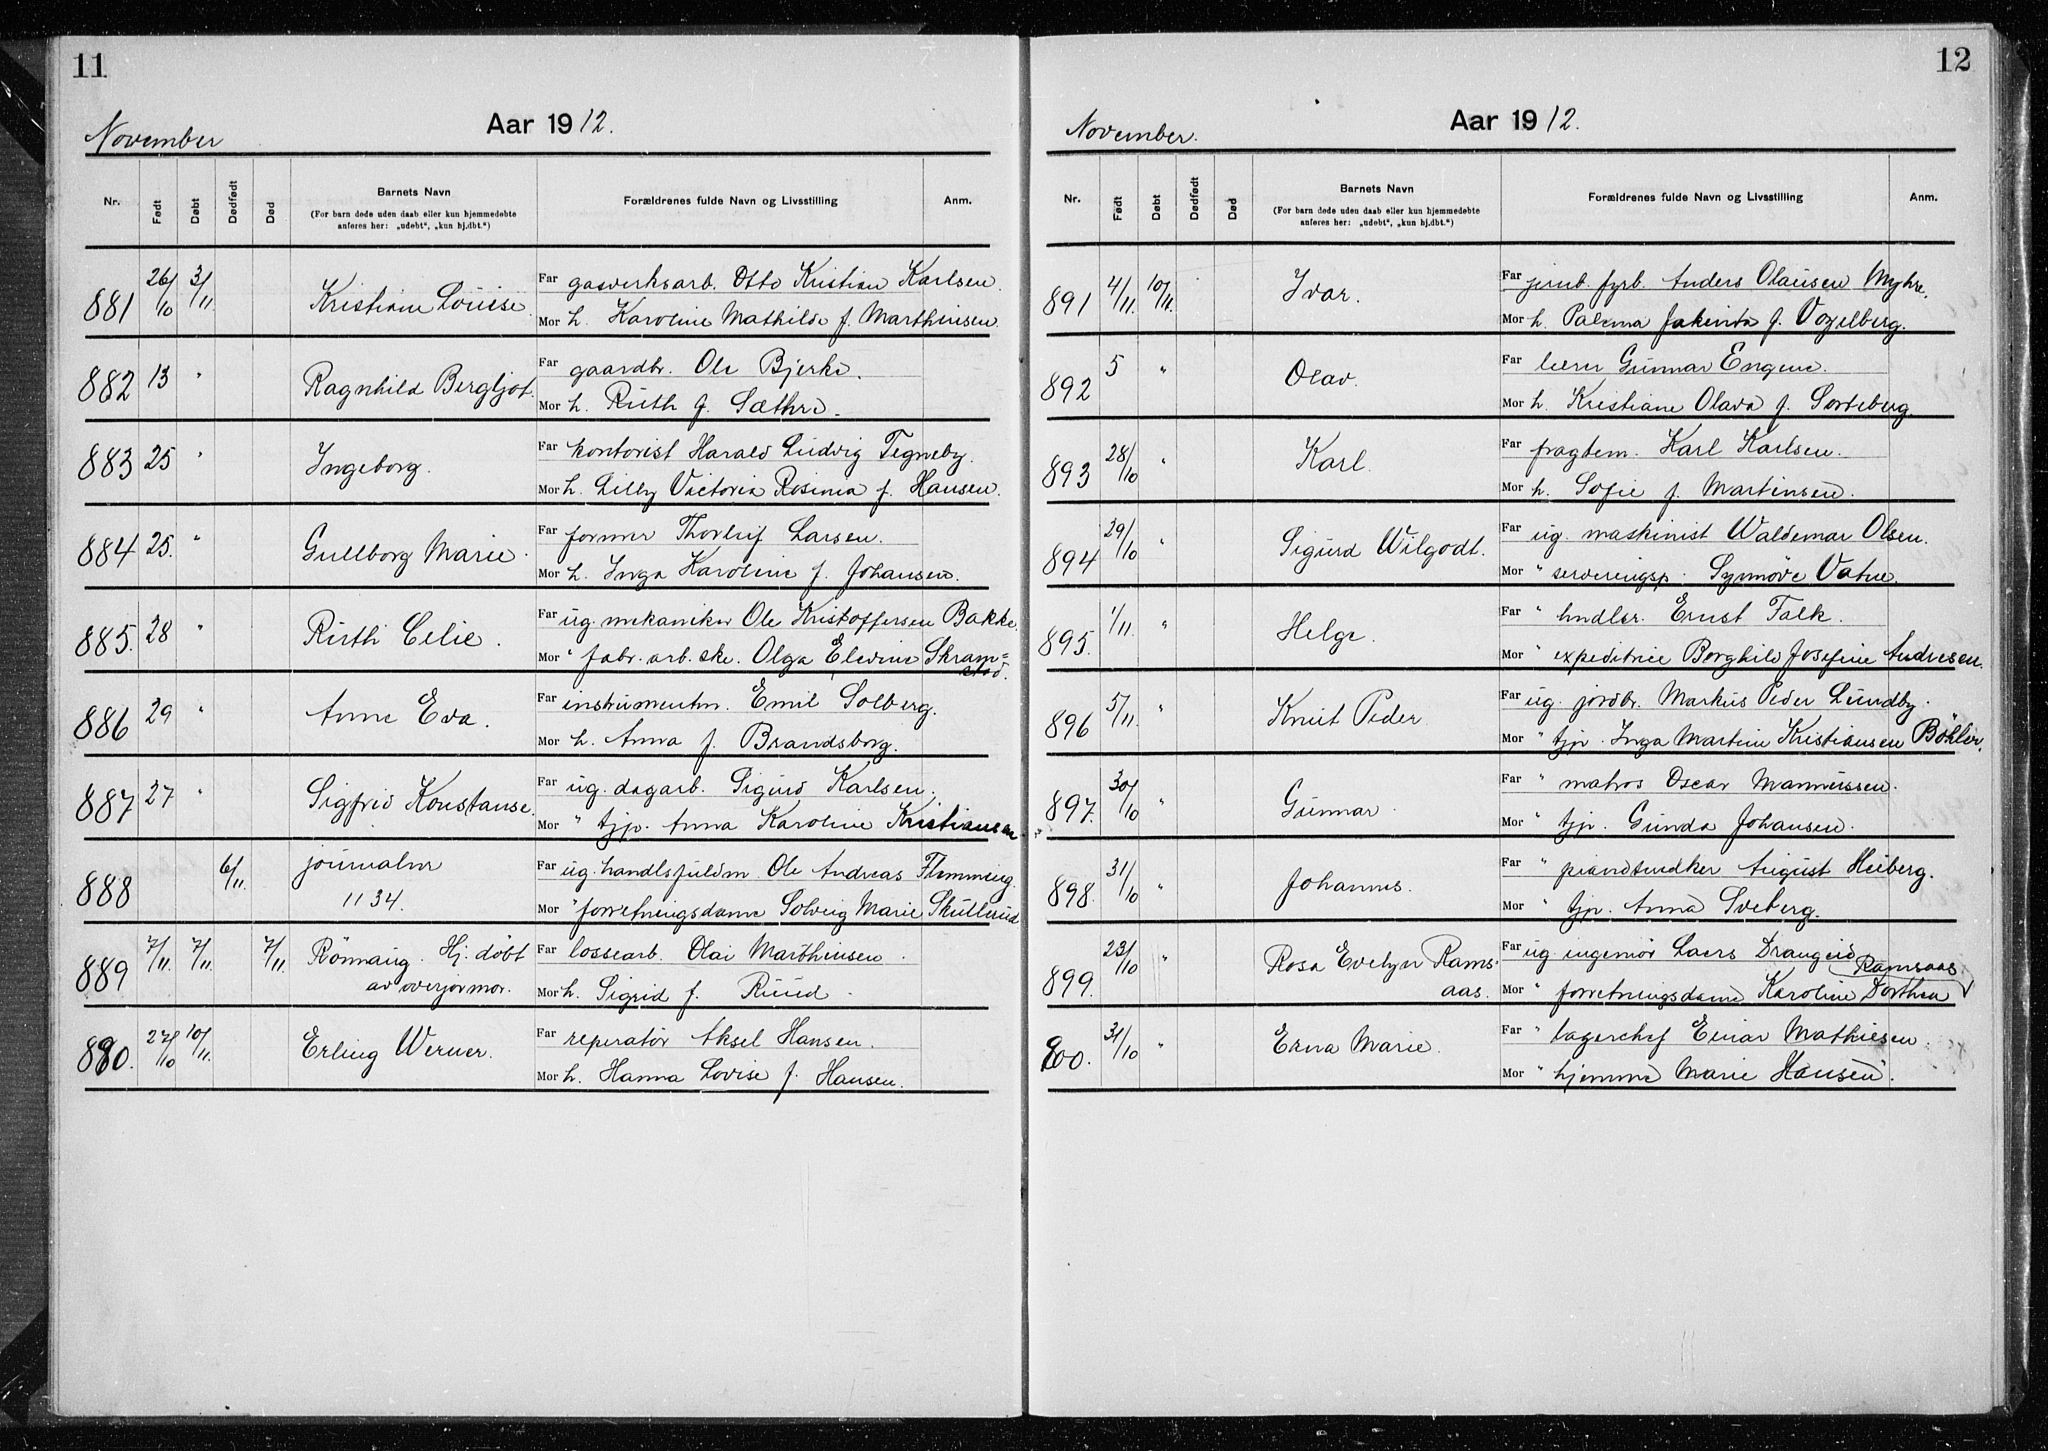 11
November
Aar 1912.
Nr. Født Døbt Dødfødt Død Barnets Navn Forældrenes fulde Navn og Livsstilling Anm.
(For barn døde uden daab eller kun hjemmedøbte
anføres her: „udøbt“, „kun hj.dbt.“)
881 26/10 3/11 Kristiane Louise. Far gasverksarb. Otto Kristian Karlsen.
Mor h. Karoline Mathilde f. Marthinsen.
882 13 " Ragnhild Bergljot. Far gaardbr. Ole Bjerke.
Mor h. Ruth f. Sæthre.
883 25 " Ingeborg. Far kontorist Harald Ludvig Tegneby.
Mor h. Lilly Victoria Rosina f. Hansen.
884 25. " Gullborg Marie. Far former Thorleif Larsen.
Mor h. Inga Karoline f. Johansen.
885. 28 " Ruth Celie. Far ug. mekaniker Ole Kristoffersen Bakke.
Mor " fabr. arb. ske. Olga Elevine Skram=
stad.
886 29 " Anne Eva. Far instrumentm. Emil Solberg.
Mor h. Anna f. Brandsborg.
887 27 " Sigfrid Konstanse. Far ug. dagarb. Sigurd Karlsen.
Mor " tjp. Anna Karoline Kristiansen
888 6/11. journalnr Far ug. handlsfuldm. Ole Andreas Flemming.
1134. Mor " forretningsdame Solveig Marie Skullerud
889 7/11. 7/11. 7/11. Rönnaug. Hj. döbt Far lossearb. Olai Marthinsen.
av overjormor. Mor h. Sigrid f. Ruud.
890. 27/10 10/11. Erling Werner. Far reperatör Aksel Hansen.
Mor h. Hanna Lovise f. Hansen.
12
November.
Aar 1912.
Nr. Født Døbt Dødfødt Død Barnets Navn Forældrenes fulde Navn og Livsstilling Anm.
(For barn døde uden daab eller kun hjemmedøbte
anføres her: „udøbt“, „kun hj.dbt.“)
891 4/11. 10/11. Ivar. Far jernb. fyrb. Anders Olausen Myhre.
Mor h. Palma Jakinta f. Vogelberg.
892 5 " Olav. Far lærer Gunnar Engene.
Mor h. Kristiane Olava f. Sorteberg.
893 28/10 " Karl. Far fragtem. Karl Karlsen.
Mor h. Sofie f. Martinsen.
894 29/10 " Sigurd Wilgodt. Far ug. maskinist Waldemar Olsen.
Mor " serveringsp. Synnöve Vatne.
895. 1/11. " Helge. Far " hndlsr. Ernst Falk.
Mor " expeditrice Borghild Josefine Andresen.
896 5/11. " Knut Peder. Far ug. jordbr. Markus Peder Lundby.
Mor " tjp. Inga Martine Kristiansen Böhler.
897. 30/10 " Gunnar. Far " matros Oscar Mannussen.
Mor " tjp. Gunda Johansen.
898. 31/10 " Johannes. Far " pianosnedker August Heiberg.
Mor " tjp. Anna Sveberg.
899. 23/10 " Rosa Evelyn Rams- Far ug. ingeniör Laers Draugeid
aas. Mor " forretningsdame Karoline Dorthea
Ramsaas.
900. 31/10 " Erna Marie. Far " lagerchef Einar Mathiesen.
Mor " hjemme Marie Hansen.